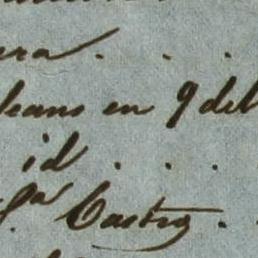 era . . .
leans en 9 del
id . . .
Sª Castro . .